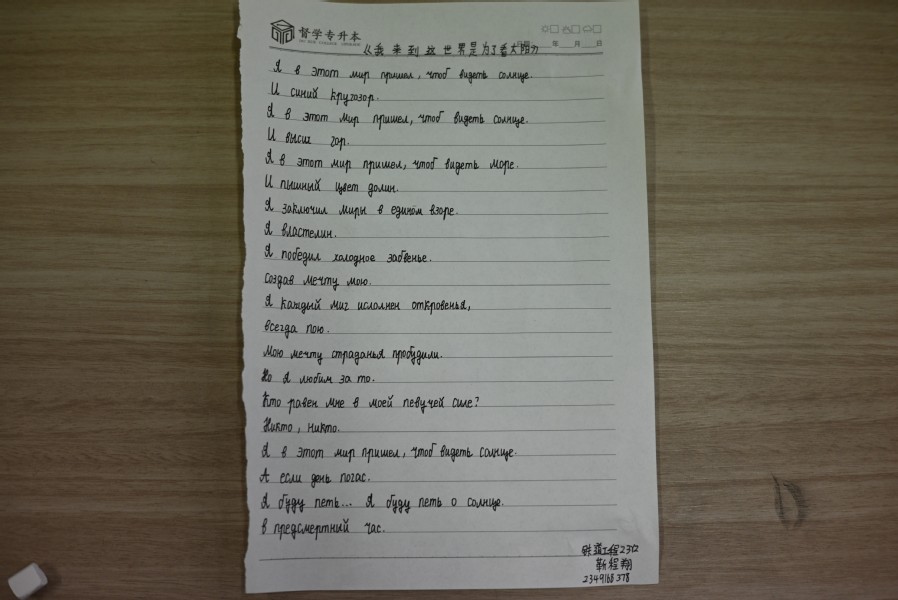 督学专升本
年 月 日
《我来到这世界是为了看太阳》
Я в этот мир пришел, чтоб видеть солнце.
И синий кругозор.
Я в этот мир пришел, чтоб видеть солнце.
И высиг гор.
Я в этот мир пришел, чтоб видеть море.
И пышный цвет долин.
Я заключил миры в едином взоре.
Я властелин.
Я победил холодное забвенье.
Создав мечту мою.
Я каждый миг исполнен откровенья,
всегда пою.
Мою мечту страданья пробудили.
Но я любим за то.
Кто равен мне в моей певучей силе?
Никто, никто.
Я в этот мир пришел, чтоб видеть солнце.
А если день погас.
Я буду петь... Я буду петь о солнце.
в предсмертный час.
铁道工程2312
靳程翔
2349168378